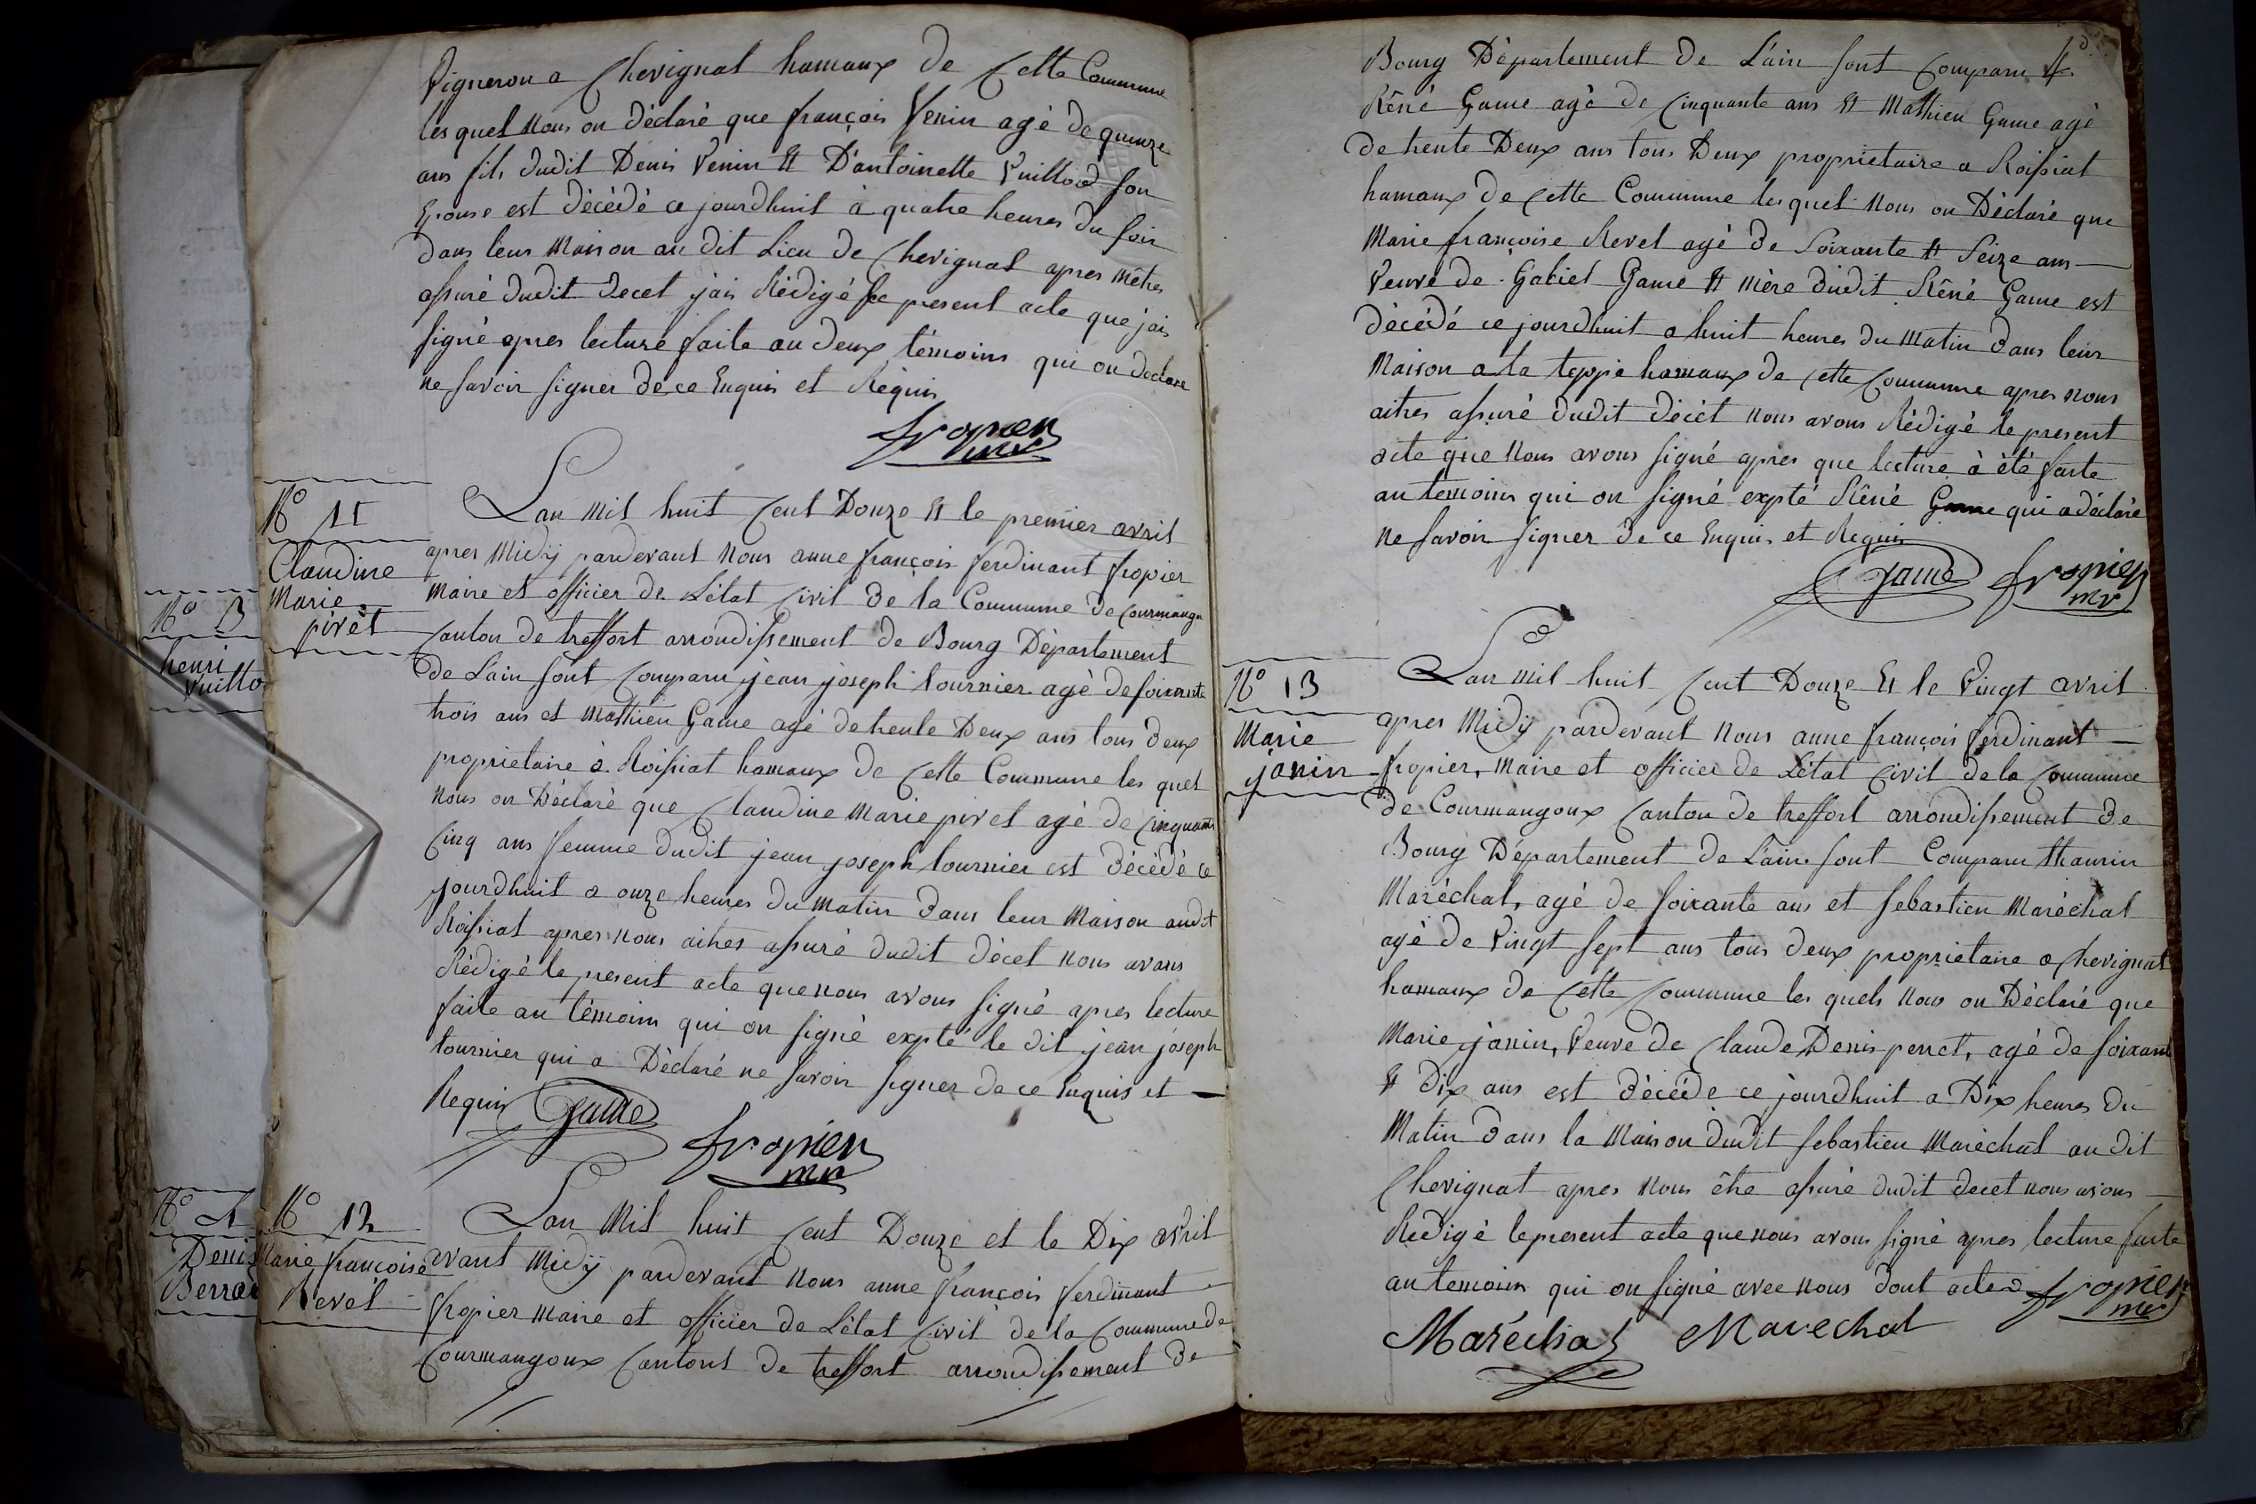 Vigneron a Chevignat hamaux de Cette Commune
les quel nous on Déclaré que françois Venin agé de quinze
ans fils dudit Denis Venin et D'antoinette Vuillod son
Epouse est décédé ce jourdhuit à quatre heures du soir
dans leur Maison au dit Lieu de Chevignat apres mètres
assuré dudit decet j'ais Rédigé le present acte que j'ais
signé apres lecture faite au deux témoins qui on declaré
ne savoir signer de ce Enquis et Requis
fropier
mre
N° 11
Claudine
Marie
pirèt
Lan mil huit Cent Douze et le premier avril
apres Midÿ pardevant nous anne françois ferdinant fropier
Maire et officier de L'état Civil de la Commune de Courmangu
Canton de treffort arrondissement de Bourg Département
de L'ain sont Comparu jean joseph tournier agé de soixante
trois ans et Mathieu Game agé de trente Deux ans tous deux
proprietaire à Roissiat hamaux de Cette Commune les quel
nous on Déclaré que Claudine Marie piret agé de Cinquante
Cinq ans femme dudit jean joseph tournier est Décédé ce
jourdhuit a onze heures du matin dans leur Maison audit
Roissiat apres nous aitres assuré dudit décet nous avons
Rédigé le present acte que nous avons signé apres lecture
faite au témoins qui on signé expté le dit jean joseph
tournier qui a Déclaré ne savoir signer de ce Enquis et
Requis Game
fropier
mre
N° 12
Marie françoise
Revel
Lan Mil huit Cent Douze et le Dix avril
avant Midÿ pardevant nous anne françois ferdinant
fropier maire et officier de L'état Civil de la Commune de
Courmangoux Cantont de treffort arrondissement de
N° 3
henri
Vuillo
N° 4
Denis
Berra
Bourg Département de L'ain sont Comparu
Réné Game agé de Cinquante ans et Mathieu Game agé
de trente Deux ans tous Deux proprietaire a Roissiat
hamaux de Cette Commune les quel nous on Déclaré que
Marie françoise Revel agé de Soixante et Seize ans
Veuve de Gabiel Game et mère dudit Réné Game est
décédé ce jourdhuit a huit heures du matin dans leur
Maison a la teppe hamaux de Cette Commune apres nous
aitres assuré dudit décèt nous avons Rédigé le present
acte que nous avons signé apres que lecture à été faite
au témoins qui on signé expté Réné Game qui a déclaré
ne savoir signer de ce Enquis et Requis
Game fropier
mre
N° 13
Marie
janin
Lan mil huit Cent Douze et le Vingt avril
apres Midÿ pardevant nous anne françois ferdinant
fropier, Maire et officier de L'état Civil de la Commune
de Courmangoux Canton de treffort arrondissement de
Bourg Département de L'ain sont Comparu thaurin
Maréchal, agé de soixante ans et sebastien Maréchal
agé de Vingt sept ans tous deux proprietaire a Chevignat
hamaux de Cette Commune les quels nous on Déclaré que
Marie janin, Veuve de Claude Denis perret, agé de soixante
et dix ans est décéde ce jourdhuit a Dix heures du
Matin dans la Maison dudit sebastien Maréchal au dit
Chevignat apres nous être assuré dudit decet nous avons
Redigé le present acte que nous avons signé apres lecture faite
au temoins qui on signé avec nous dont acte fropier
mre
Maréchal Marechal